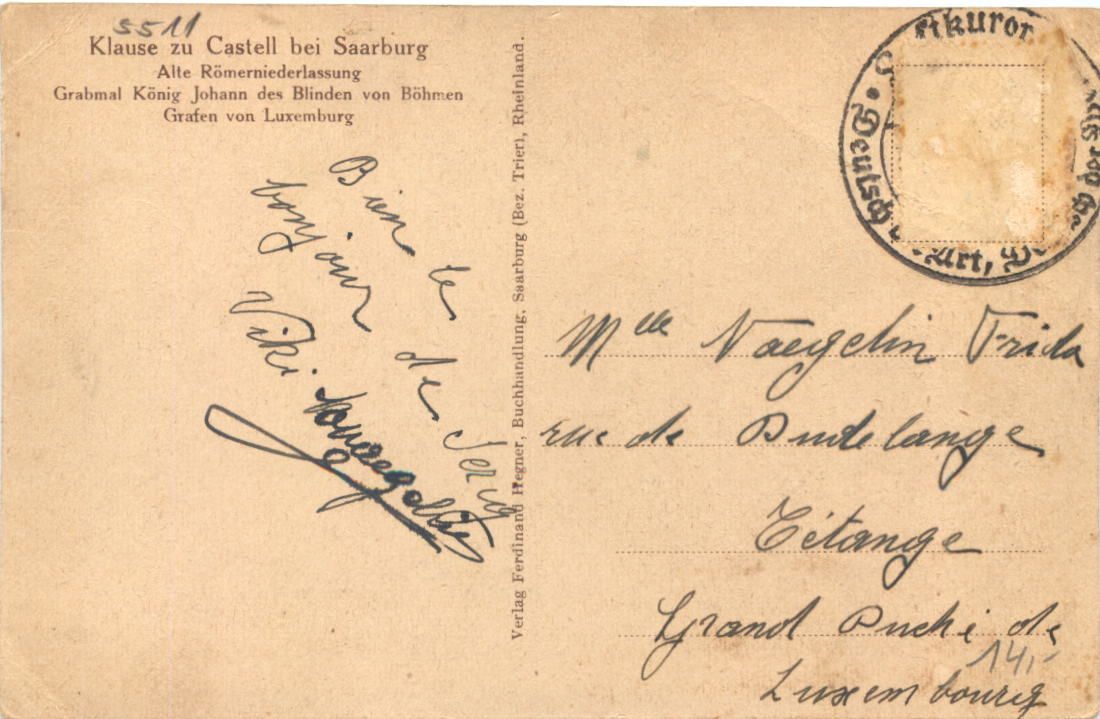 5511
Klause zu Castell bei Saarburg
Alte Römerniederlassung
Grabmal König Johann des Blinden von Böhmen
Grafen von Luxemburg
Bien le
bonjour de Serrig
Viki
Verlag Ferdinand Hegner, Buchhandlung, Saarburg (Bez. Trier), Rheinland.
Mlle Naegelin Frida
rue de Dudelange
Tétange
Grand Duché de
Luxembourg
14,-